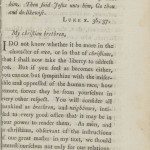 him. Then said Jesus unto him, Go thou
and do likewise.
LUKE x. 36, 37.
My christian brethren,
I DO not know whether it be more in the
character of one, or to that of christian
that I shall now take the liberty to address
you. But if you feel as becomes either,
you cannot but sympathize with the
and of the human race, how
soever, they be from yourselves in
every other respect. You will consider all
mankind as brethren, and neighbours,
as to every good office that it may be in
your power to render them. As men, and
as christians, observant of the instructions
of our great master in my text, we should
ourselves not only for our relations